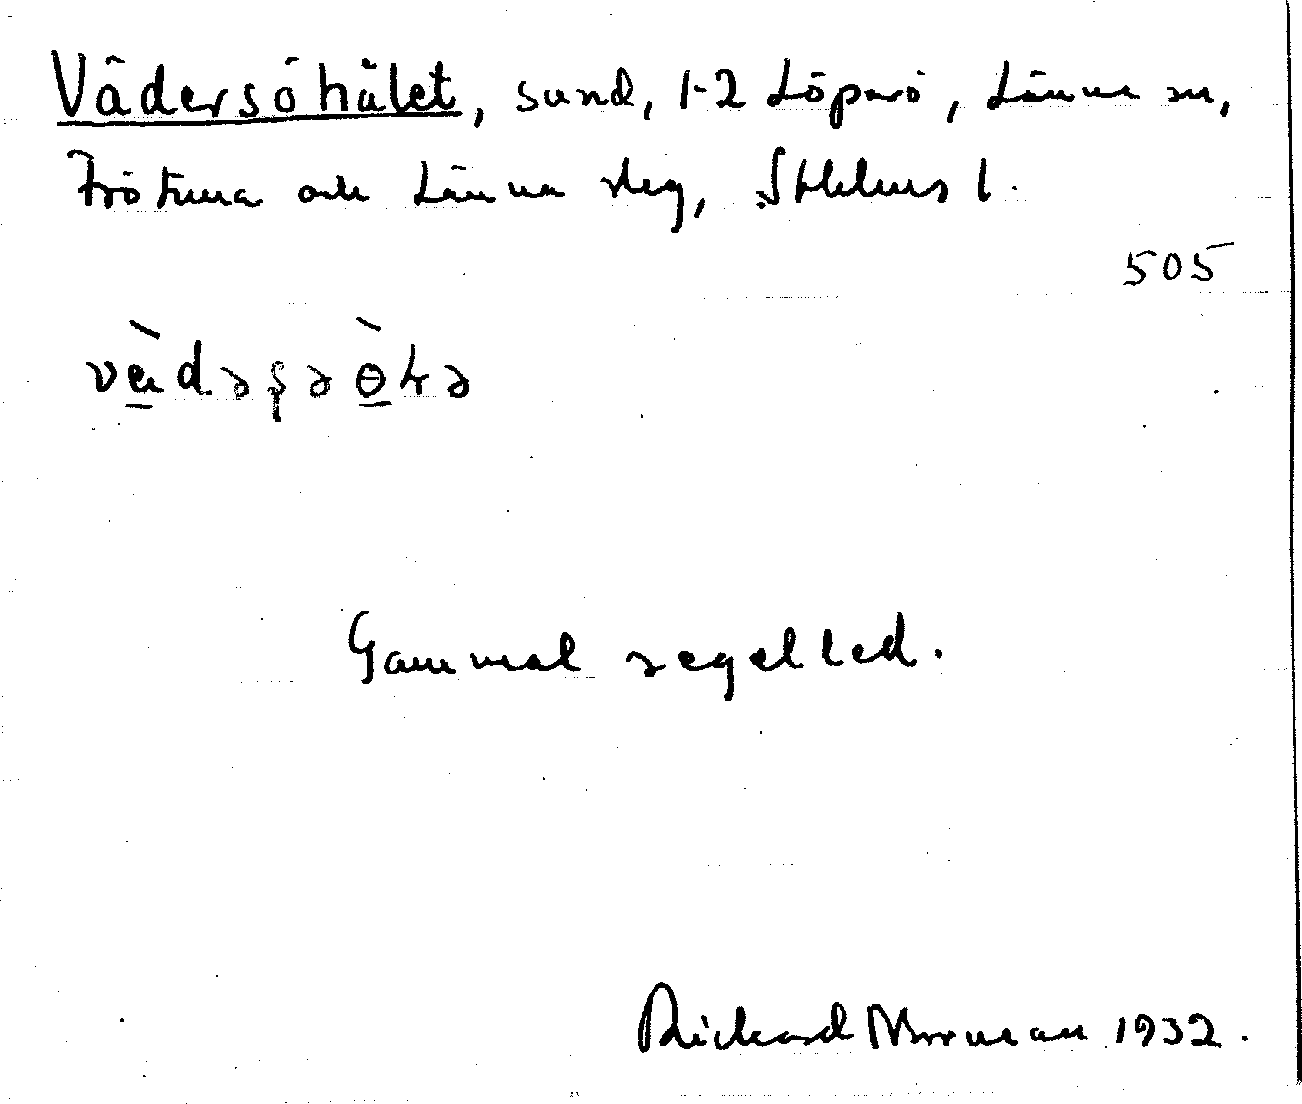 Vädersöhålet, sund, 1-2 Löparö, Länna sn,
Frötuna och Länna slg, Sthlms l.
505
Gammal segelled.
Rickard Norman 1932.